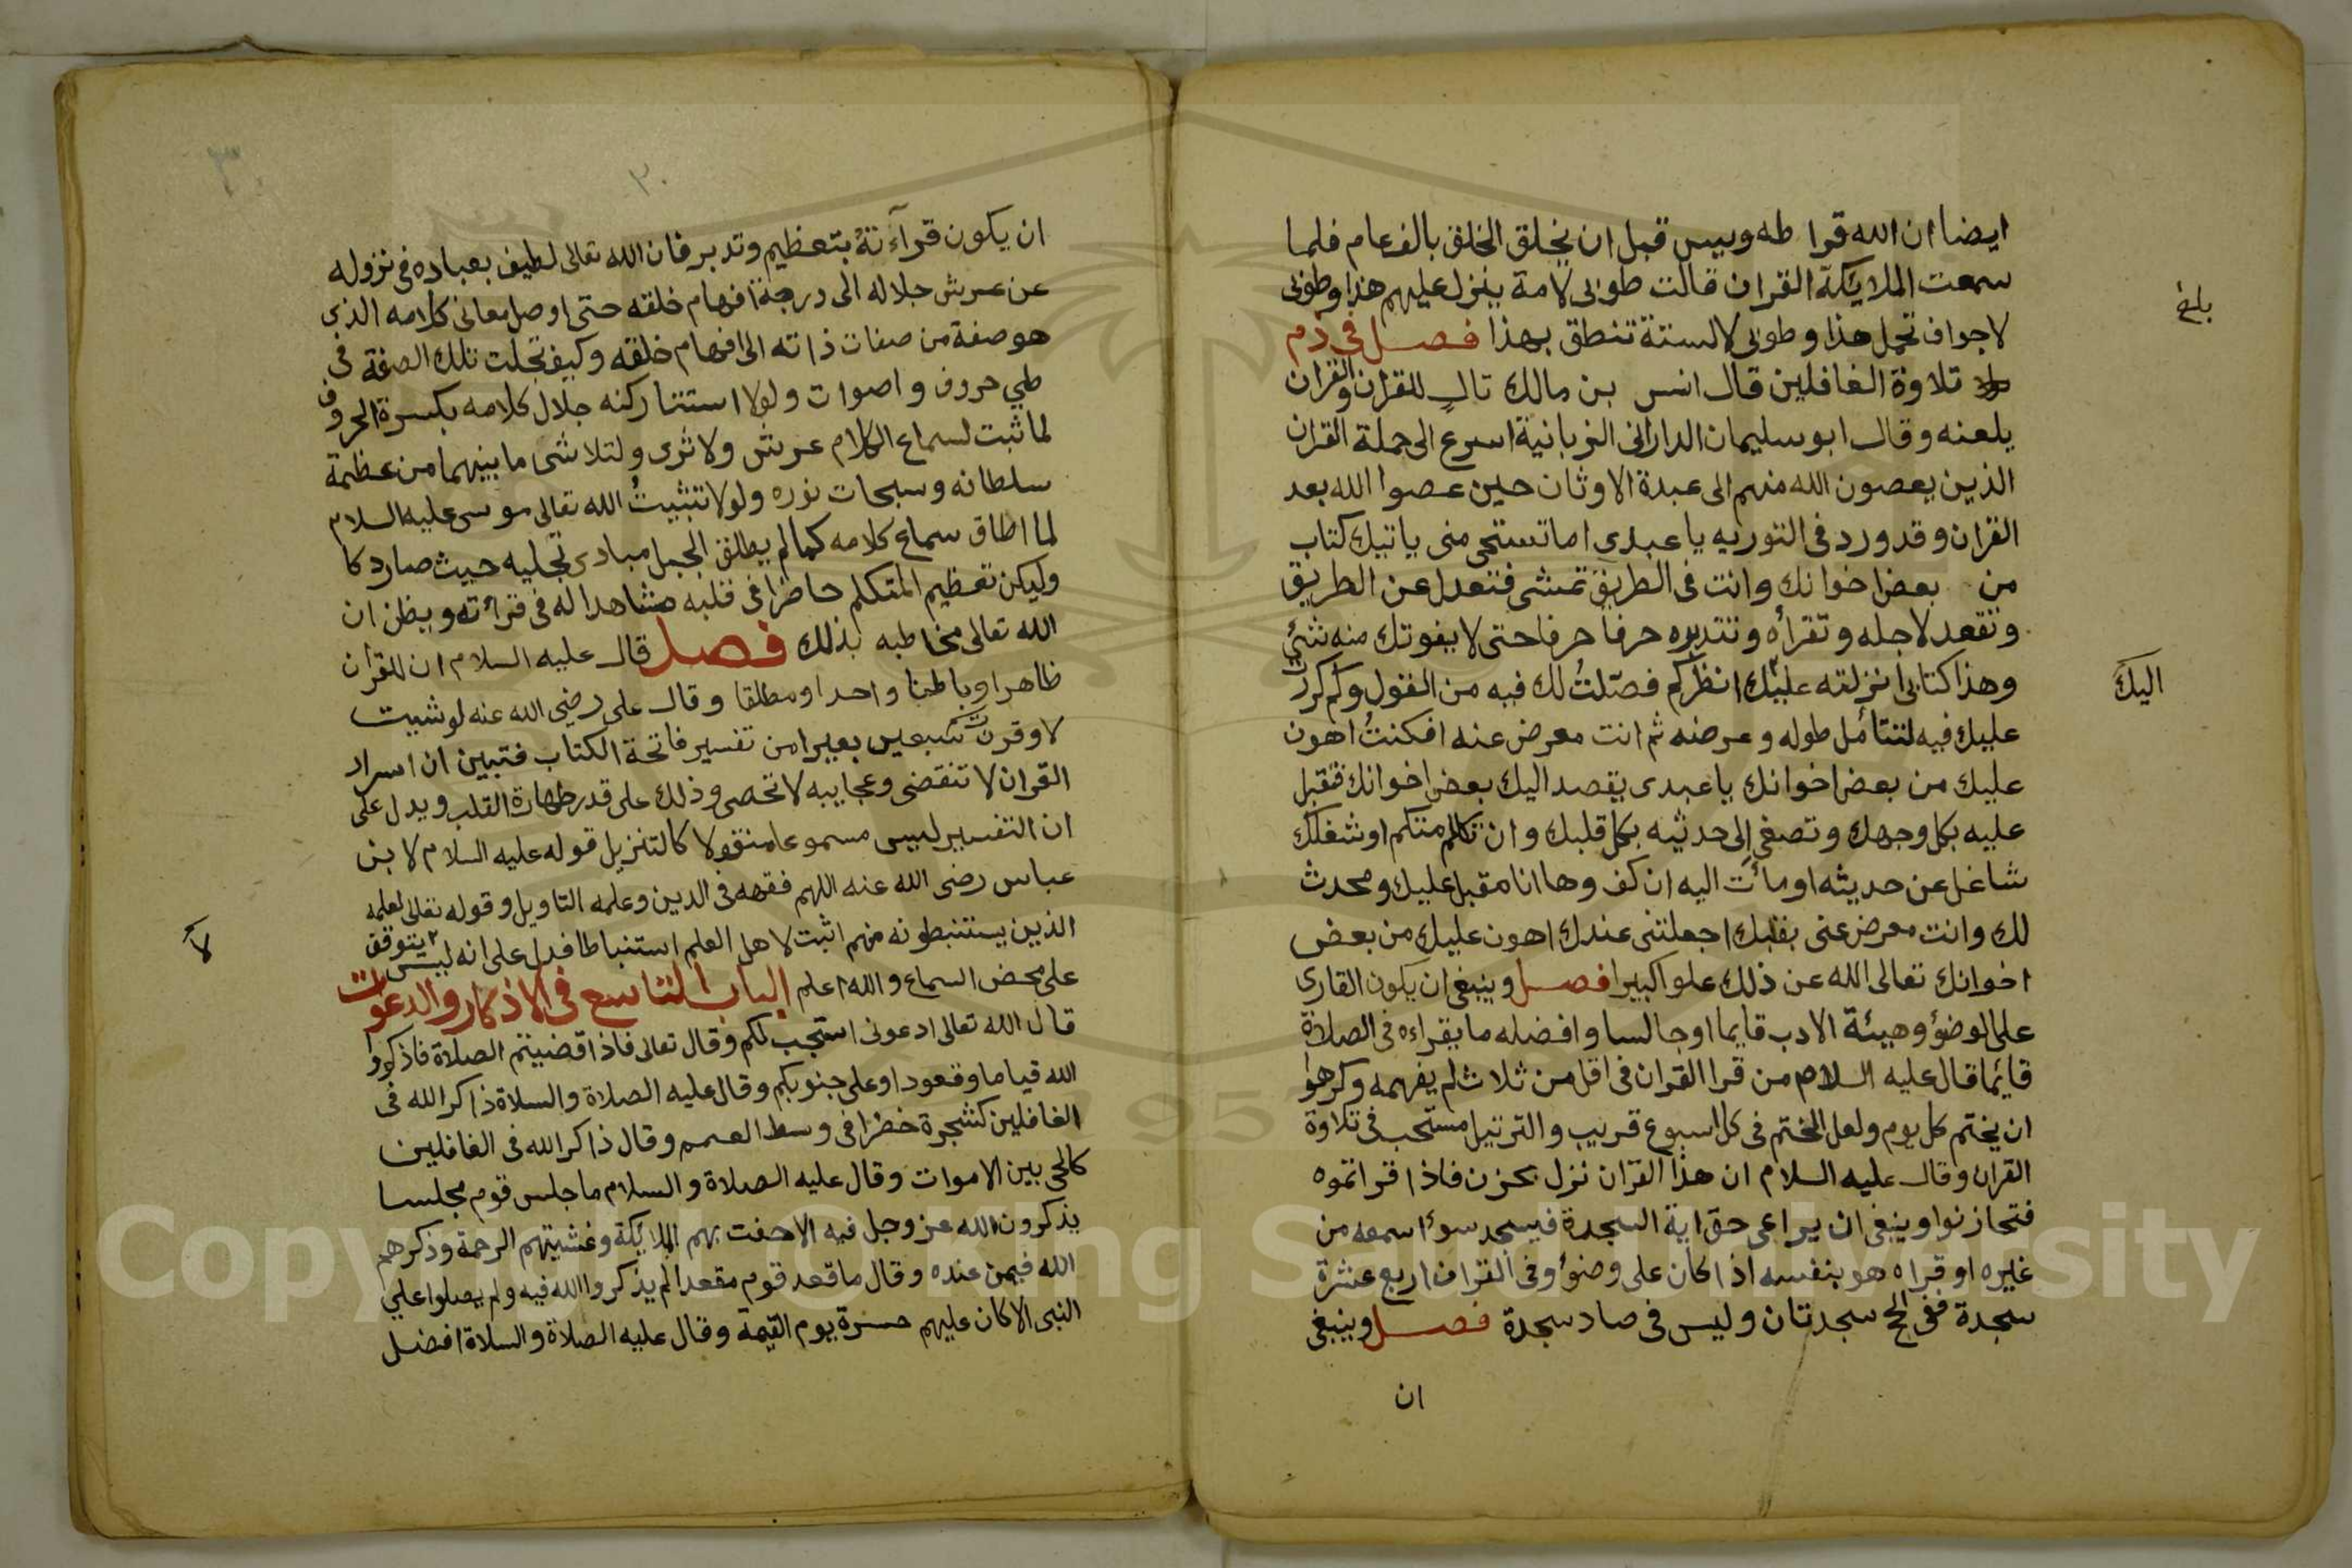 ايضا ان الله قرا طه ويس قبل ان يخلق الخلق بالف عام فلما
سمعت الملايكة القران قالت طوبى لامة ينزل عليهم هذا وطوبى
بلغ
لاجواف تحمل هذا وطوبى لالسنة تنطق بهذا فصل في ذم
تلاوة الغافلين قال انس بن مالك تالٍ للقران والقران
يلعنه وقال ابو سليمان الدارانى الزبانية اسرع الى حملة القران
الذين يعصون الله منهم الى عبدة الاوثان حين عصوا الله بعد
القران وقد ورد فى التوريه يا عبدى اما تستحى منى ياتيك كتاب
من بعض اخوانك وانت فى الطريق تمشى فتعدل عن الطريق
وتقعد لاجله وتقرأه وتتدبره حرفا حرفا حتى لا يفوتك منه شئ
وهذا كتابى انزلته عليك انظركم فصّلتُ لك فيه من القول وكم كررت
اليك
عليك فيه لتتأمل طوله وعرضه ثم انت معرض عنه افكنتُ اهون
عليك من بعض اخوانك يا عبدى يقصد اليك بعض اخوانك فتقبل
عليه بكل وجهك وتصغى الى حديثه بكل قلبك وان تكلم متكلم او شغلك
شاغل عن حديثه اومأت اليه ان كف وها انا مقبل عليك ومحدث
لك وانت معرض عنى بقلبك اجعلتنى عندك اهون عليك من بعض
اخوانك تعالى الله عن ذلك علوا كبيرا فصل وينبغى ان يكون القارى
على الوضؤ وهيئة الادب قايما او جالسا وافضله ما يقراءه فى الصلاة
قائما قال عليه السلام من قرا القران فى اقل من ثلاث لم يفهمه وكرهوا
ان يختم كل يوم ولعل الختم فى كل اسبوع قريب والترتيل مستحب فى تلاوة
القران وقال عليه السلام ان هذا القران نزل بحزن فاذا قراتموه
فتحازنوا وينبغى ان يراعى حق اية السجدة فيسجد سوا سمعه من
غيره او قراه هو بنفسه اذا كان على وضؤ وفى القران اربع عشرة
سجدة ففى الحج سجدتان وليس فى صاد سجدة فصل وينبغى
ان
٣٠
ان يكون قرآءتهُ بتعظيم وتدبر فان الله تعالى لطيف بعباده فى نزوله
عن عرش جلاله الى درجة افهام خلقه حتى اوصل معانى كلامه الذى
هو صفة من صفات ذاته الى افهام خلقه وكيف تجلت تلك الصفة فى
طي حروف واصوات ولولا استتار كنه جلال كلامه بكسرة الحروف
لما ثبت لسماع الكلام عرش ولا ثرى ولتلاشى ما بينهما من عظمة
سلطانه وسبحات نوره ولولا تثبيتُ الله تعالى موسى عليه السلام
لما اطاق سماع كلامه كما لم يطلق الجبل مبادى تجليه حيث صار دكا
وليكن تعظيم المتكلم حاضرا فى قلبه مشاهدا له فى قرأته ويظن ان
الله تعالى مخاطبه بذلك فصل قال عليه السلام ان للقران
ظاهرا وباطنا واحدا ومطلقا وقال على رضى الله عنه لو شيت
لاوقرت سبعين بعيرا من تفسير فاتحة الكتاب فتبين ان اسرار
القران لا تنقضى وعجايبه لا تحصى وذلك على قدر طهارة القلب ويدل على
ان التفسير ليس مسموعا منقولا كالتنزيل قوله عليه السلام لابن
عباس رضى الله عنه اللهم فقهه فى الدين وعلمه التاويل وقوله تعالى لعلمه
الذين يستنبطونه منهم اثبت لاهل العلم استنباطا فدل على انه ليس يتوقف
لا
على محض السماع والله اعلم الباب التاسع فى الاذكار والدعوات
قال الله تعالى ادعونى استجب لكم وقال تعالى فاذا قضيتم الصلاة فاذكروا
الله قياما وقعودا وعلى جنوبكم وقال عليه الصلاة والسلاة ذاكر الله فى
الغافلين كشجرة خضرا فى وسط وقال ذاكر الله فى الغافلين
كالحى بين الاموات وقال عليه الصلاة والسلام ما جلس قوم مجلسا
يذكرون الله عز وجل فيه الا حفت بهم الملايكة وغشيتهم الرحمة وذكرهم
الله فيمن عنده وقال ما قعد قوم مقعدا لم يذكروا الله فيه ولم يصلوا علي
النبى الا كان عليهم حسرة يوم القيمة وقال عليه الصلاة والسلاة افضل
Copyright © King Saud University